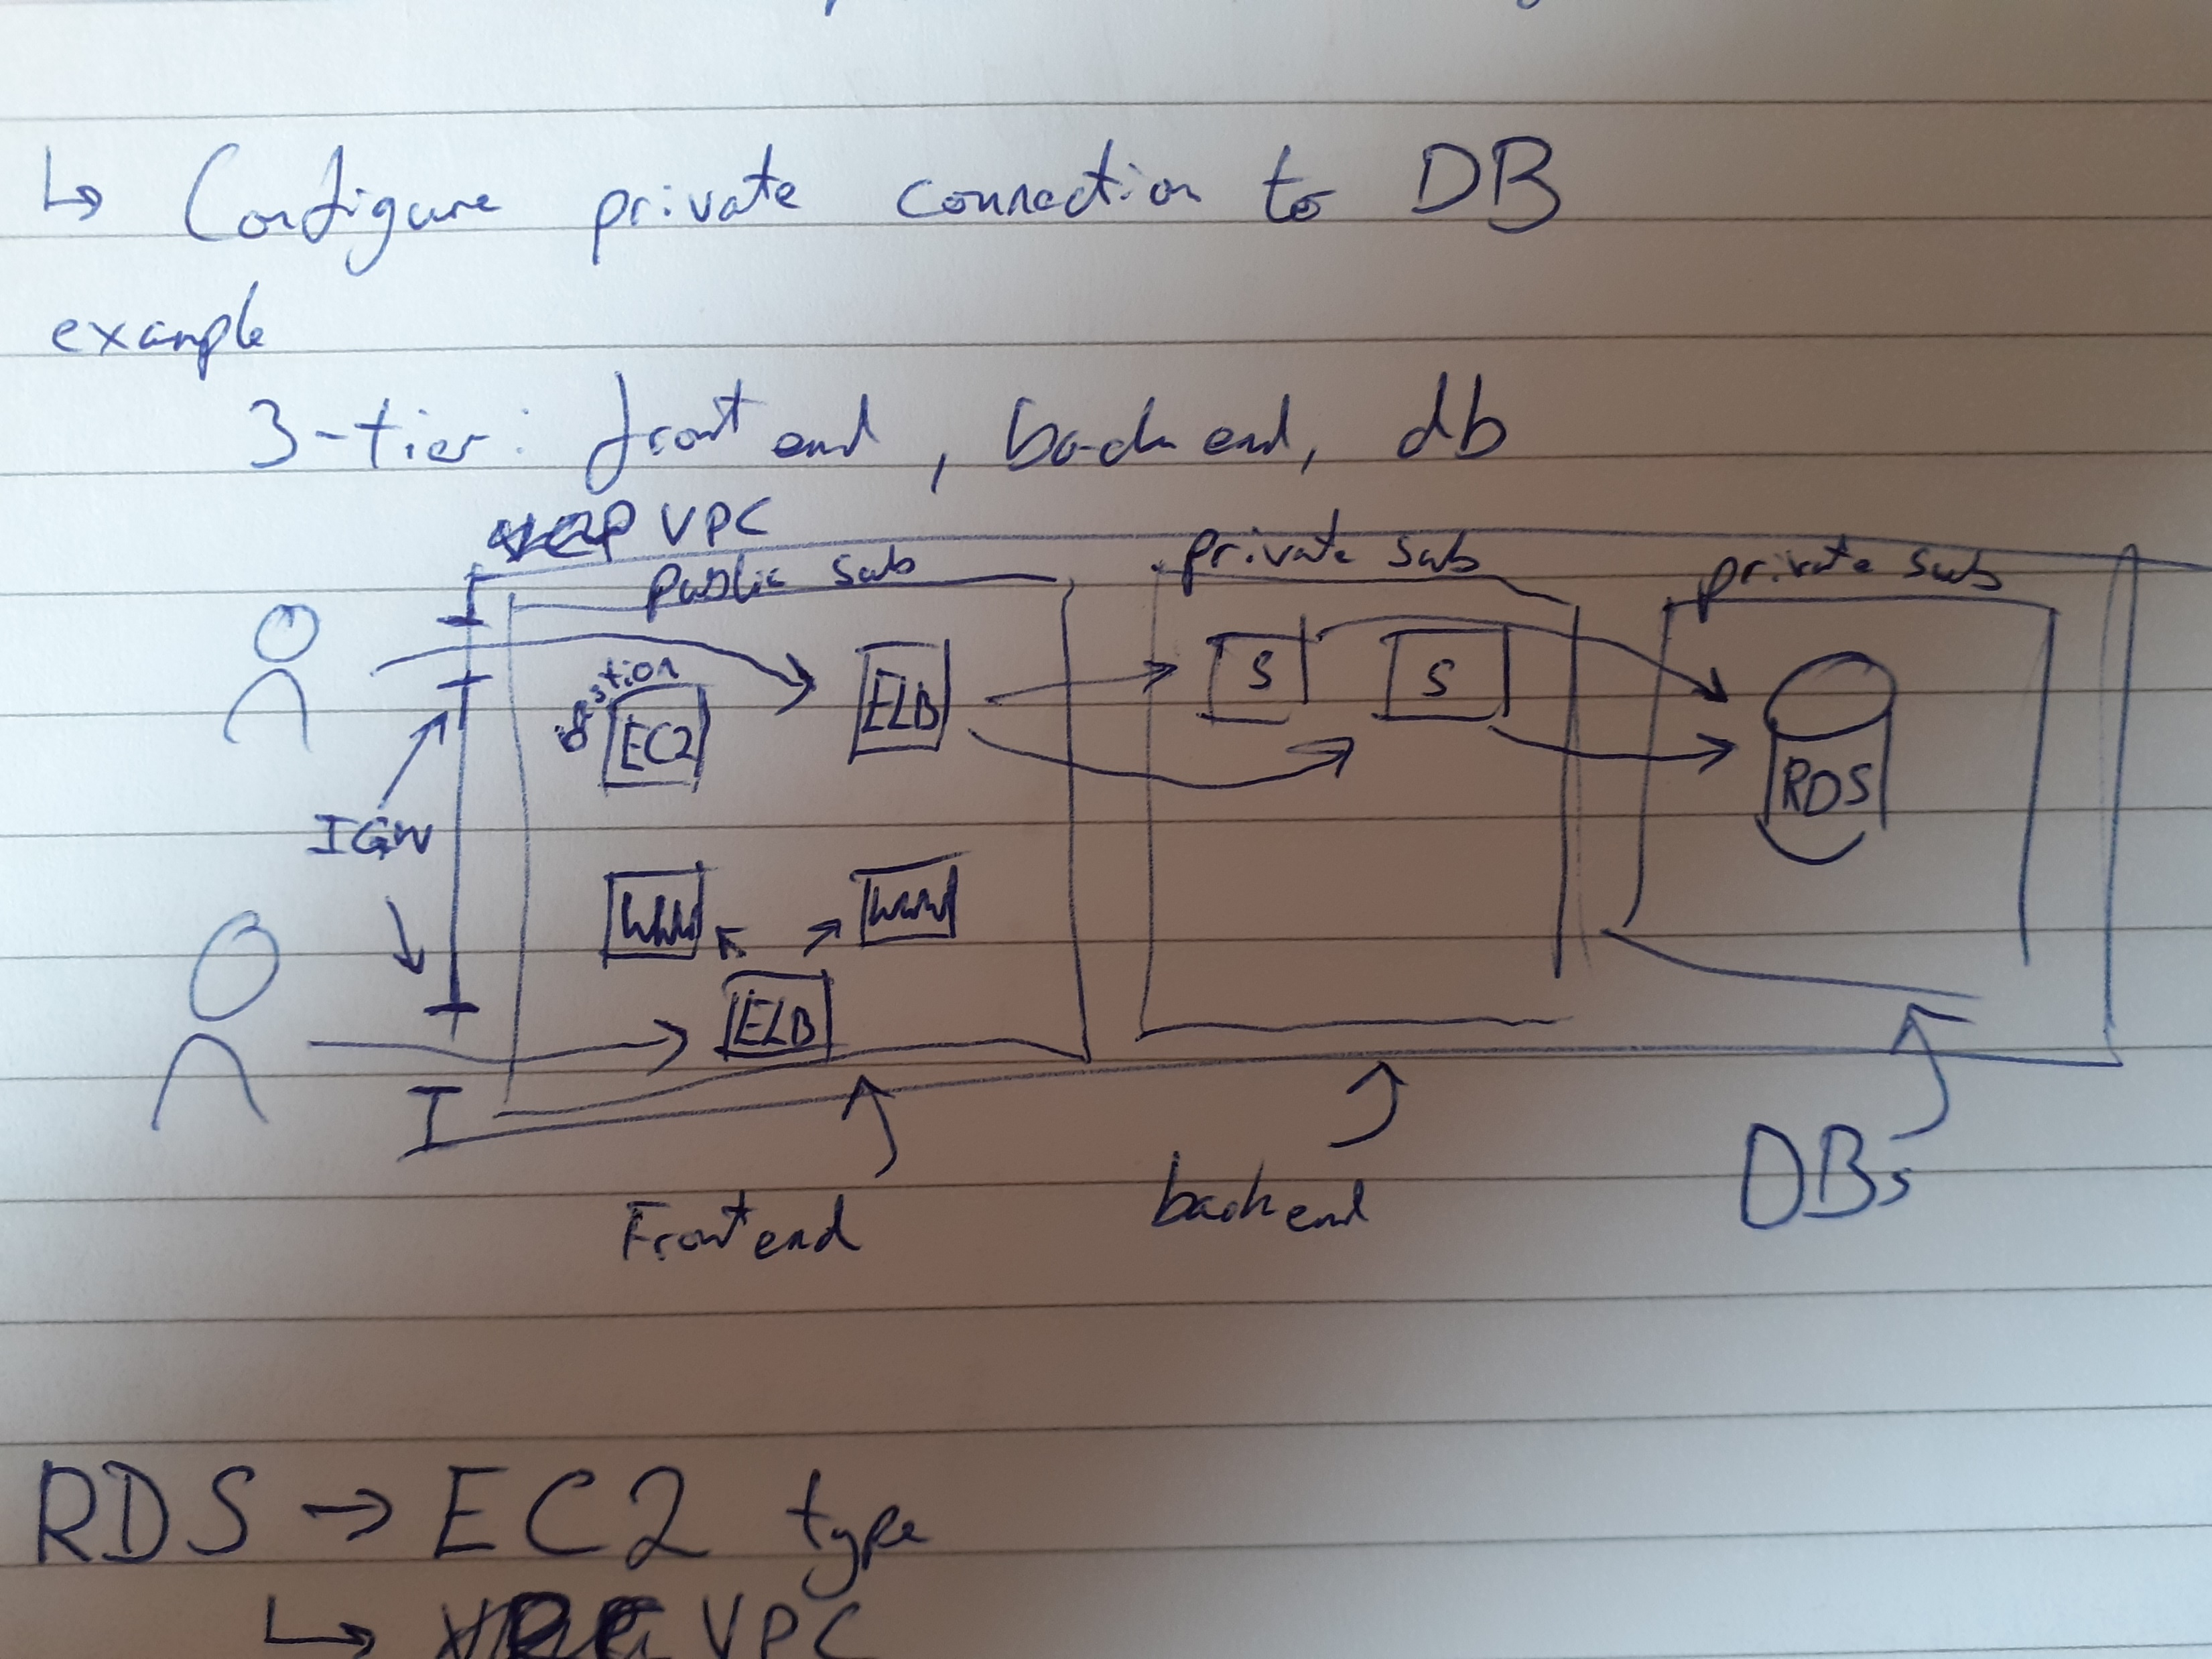 ↳ Configure private connection to DB
example
3-tier: front end, backend, db
VPC
public sub
private sub
private sub
Bastion
EC2
ELB
S
S
RDS
IGW
WWW
WWW
ELB
Frontend
backend
DBs
RDS → EC2 type
↳ VPC